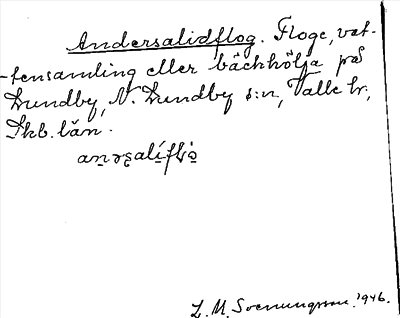 Andersalidflog. Floge, vat-
-tensamling eller bäckhölja på
Lundby, N. Lundby s:n, Valle hr,
Skb. län.
L. M. Svenungsson. 1946.